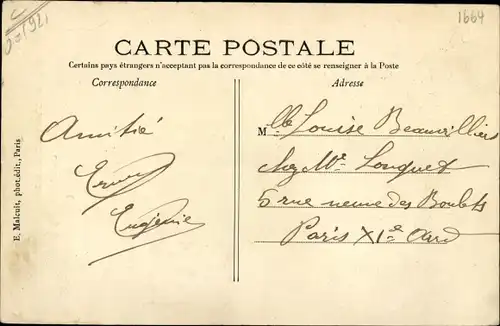 1664
CARTE POSTALE
Certains pays étrangers n'acceptant pas la correspondance de ce côté se renseigner à la Poste
Correspondance
Adresse
Amitié
Eugénie
Mlle Louise Beauvilliers
chez Mr Louquet
5 rue neuve des Boulets
Paris XIe Ard
E. Malcuit, phot. édit., Paris